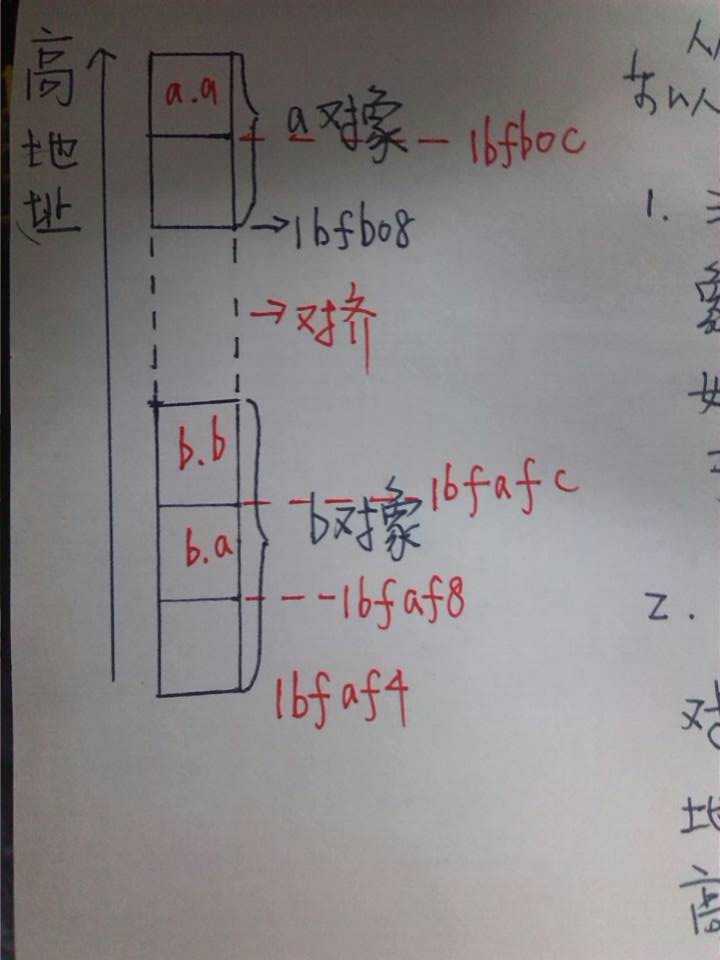 高地址
a.a
a对象
1bfb0c
1bfb08
对齐
b.b
1bfafc
b对象
b.a
1bfaf8
1bfaf4
1.
2.
对
地
高